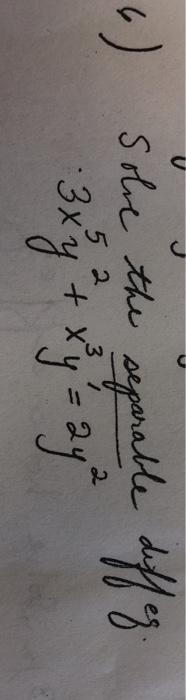 6) Solve the separable diffeq.
: 3x⁵y² + x³y' = 2y²